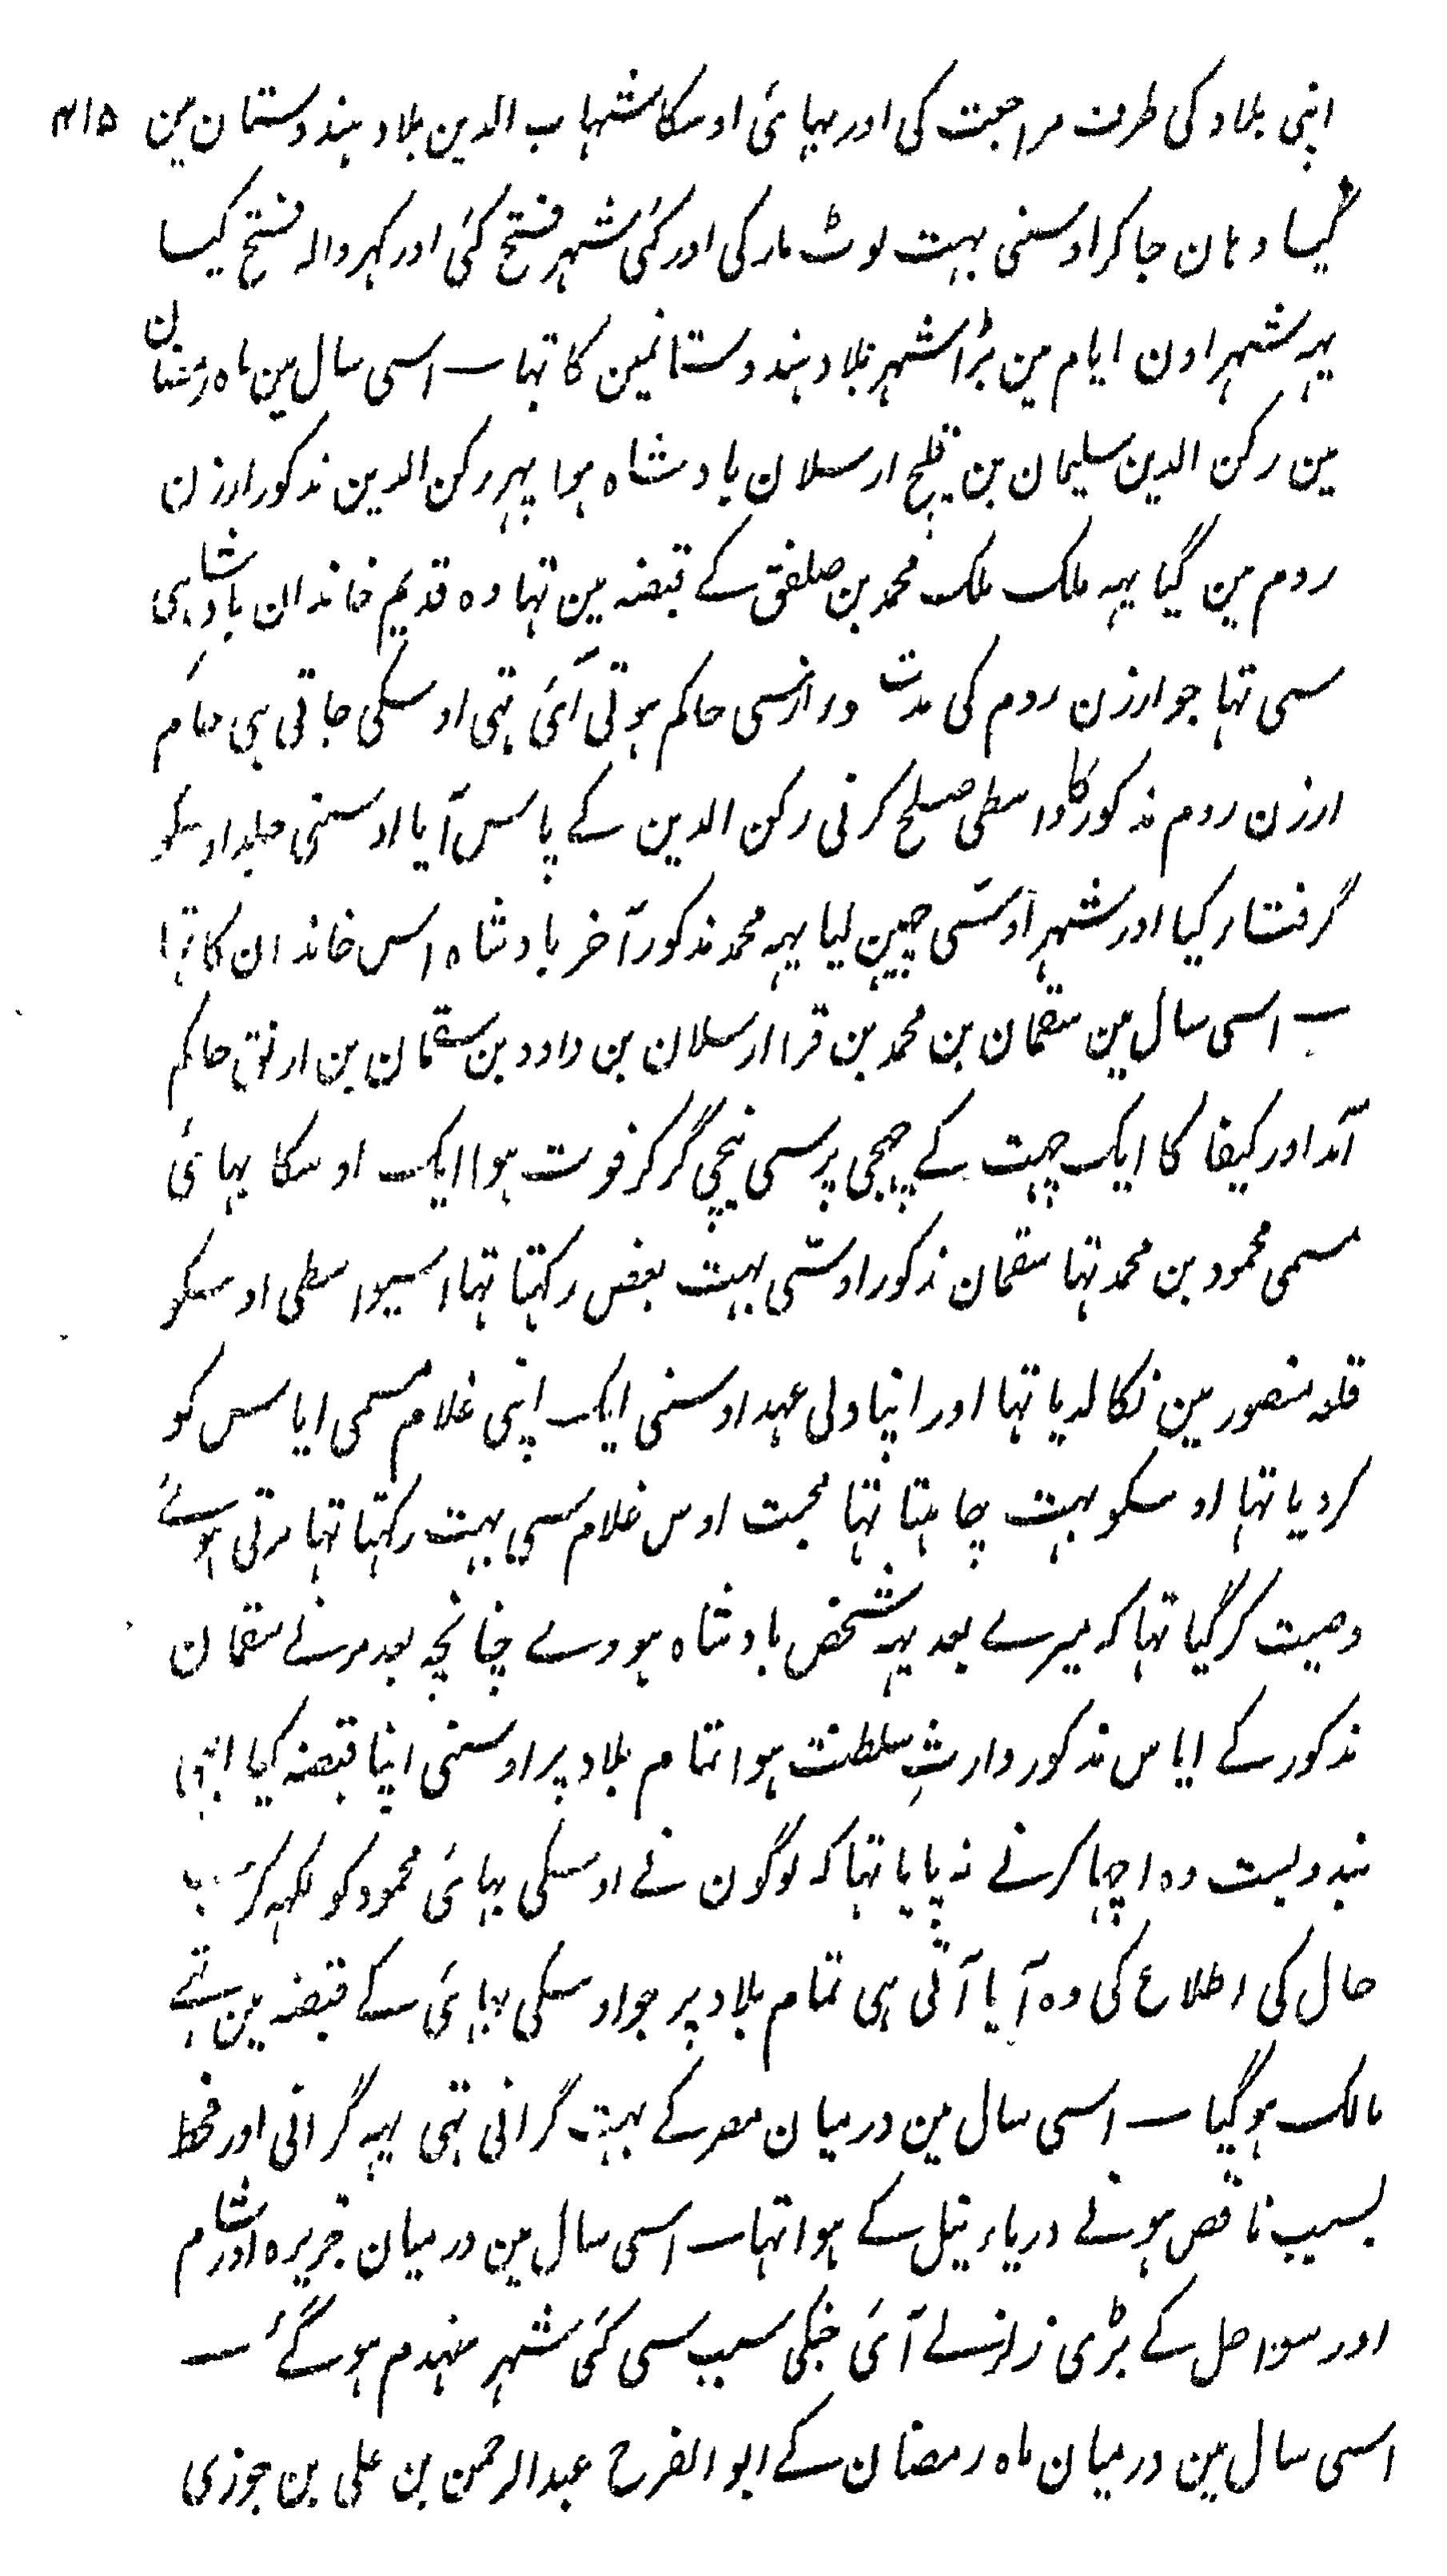 اپنی بلاد کی طرف مراجعت کی اور بہائی اوسکا شہاب الدین بلاد ہندوستان مین ۴۱۵
گیا وہان جا کر اوسنی بہت لوٹ مار کی اور کئی شہر فتح کئی اور نہر والہ فتح کیا
یہہ شہر اون ایام مین بڑا شہر بلاد ہندوستانمین کا تہا ــ اسی سال مین ماہ رمضان
مین رکن الدین سلیمان بن قلیج ارسلان بادشاہ ہوا پہر رکن الدین مذکور ارزن
روم مین گیا یہہ ملک ملک محمد بن صلفق کے قبضہ مین تہا وہ قدیم خاندان بادشاہی
سی تہا جو ارزن روم کی مدت درازسی حاکم ہوتی آئی تہی اوسکی جاتی ہی حاکم
ارزن روم مذکور کا واسطی صلح کرنی رکن الدین کے پاس آیا اوسنی جلد اوسکو
گرفتار کیا اور شہر اوسّی چہین لیا یہہ محمد مذکور آخر بادشاہ اس خاندان کا تہا
ــ اسی سال مین سقمان بن محمد بن قرا ارسلان بن داود بن سقمان بن ارتق حاکم
آمد اور کیفا کا ایک چہت کے چہجی پرسی نیچی گر کر فوت ہوا ایک اوسکا بہائی
مسمی محمود بن محمد تہا سقمان مذکور اوسّی بہت بغض رکہتا تہا اسیواسطی اوسکو
قلعہ منصور مین نکالدیا تہا اور اپنا ولی عہد اوسنی ایک اپنی غلام مسمی ایاس کو
کر دیا تہا اوسکو بہت چاہتا تہا محبت اوس غلام سی بہت رکہتا تہا مرتی ہوئے
وصیت کر گیا تہا کہ میرے بعد یہہ شخص بادشاہ ہووے چنانچہ بعد مرنے سقمان
مذکور کے ایاس مذکور وارثِ سلطنت ہوا تمام بلاد پر اوسنی اپنا قبضہ کیا ابہی
بندوبست وہ اچہا کرنے نہ پایا تہا کہ لوگون نے اوسکی بہائی محمود کو لکہہ کر سب
حال کی اطلاع کی وہ آیا آتی ہی تمام بلاد پر جو اوسکی بہائی کے قبضہ مین تہے
مالک ہو گیا ــ اسی سال مین درمیان مصر کے بہت گرانی تہی یہہ گرانی اور قحط
بسبب ناقص ہونے دریاء نیل کے ہوا تہا ــ اسی سال مین درمیان جزیرہ اور شام
اور سواحل کے بڑی زلزلے آئی جنکی سبب سی کئی شہر منہدم ہو گئے ــ
اسی سال مین درمیان ماہ رمضان کے ابو الفرح عبدالرحمن بن علی بن جوزی